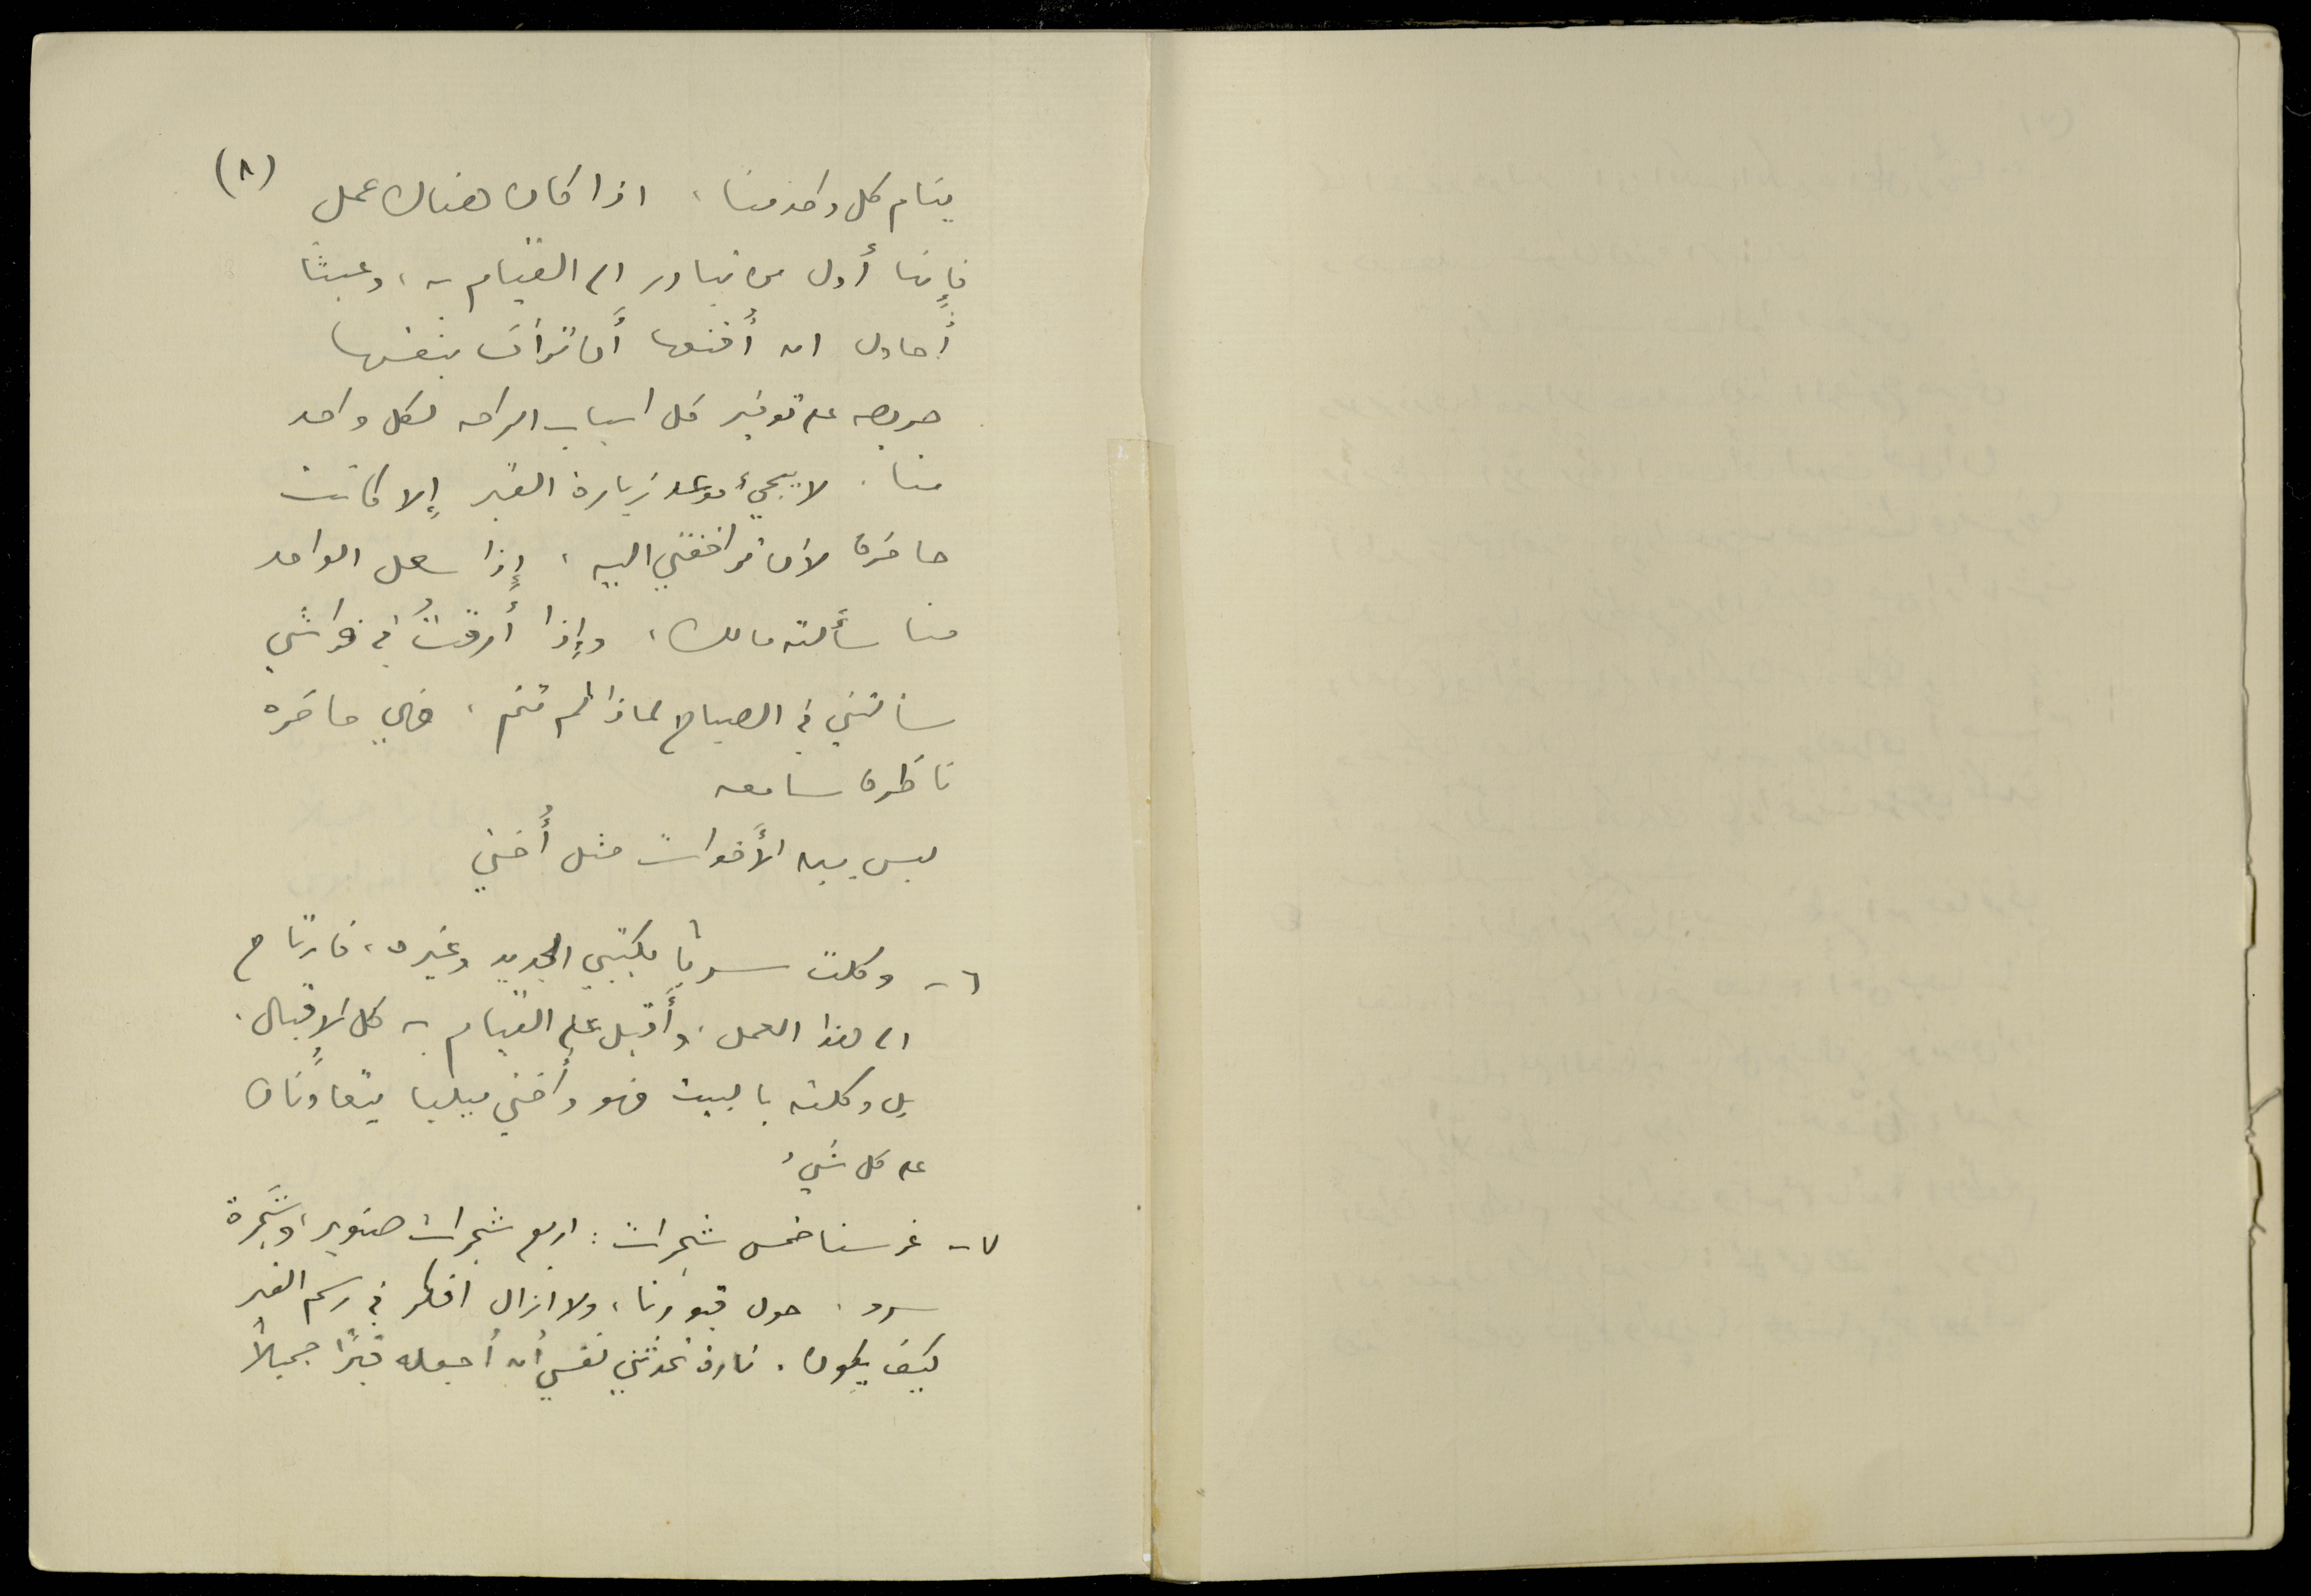 (٨)
ينام كل واحد منا، اذا كان هناك عمل
فإنها أول من تبادر الى القيام به، وعبثًا
أُحاول ان أُقنعها أَن ترأف بنفسها
حريصه على توفير كل اسباب الراحه لكل واحد
منا. لا يجيء موعد زيارة القبر إلا كانت
حاضرة لأن ترافقني اليه، إِذا سعل الواحد
منا سألته مالك، وإِذا أرقتُ في فراشي
سألتني في الصباح لماذا لم تنم، فهي حاضره
ناظرة سامعه
ليس بين الأَخوات مثل أُختي
٦- وكلت سريا بكتبي الجديد وغيره، فارتاح
الى هذا العمل. وأَقبل على القيام به كل الإقبال.
بل وكلته بالبيت فهو وأختي ميليا يتعاونان
على كل شيء
٧- غرسنا خمس شجرات: اربع شجرات صنوبر، وشجرة
سرو. حول قبورنا، ولا ازال افكر في رسم القبر
كيف يكون. تارة تحدثني نفسي أن أجعله قبرًا جميلاً